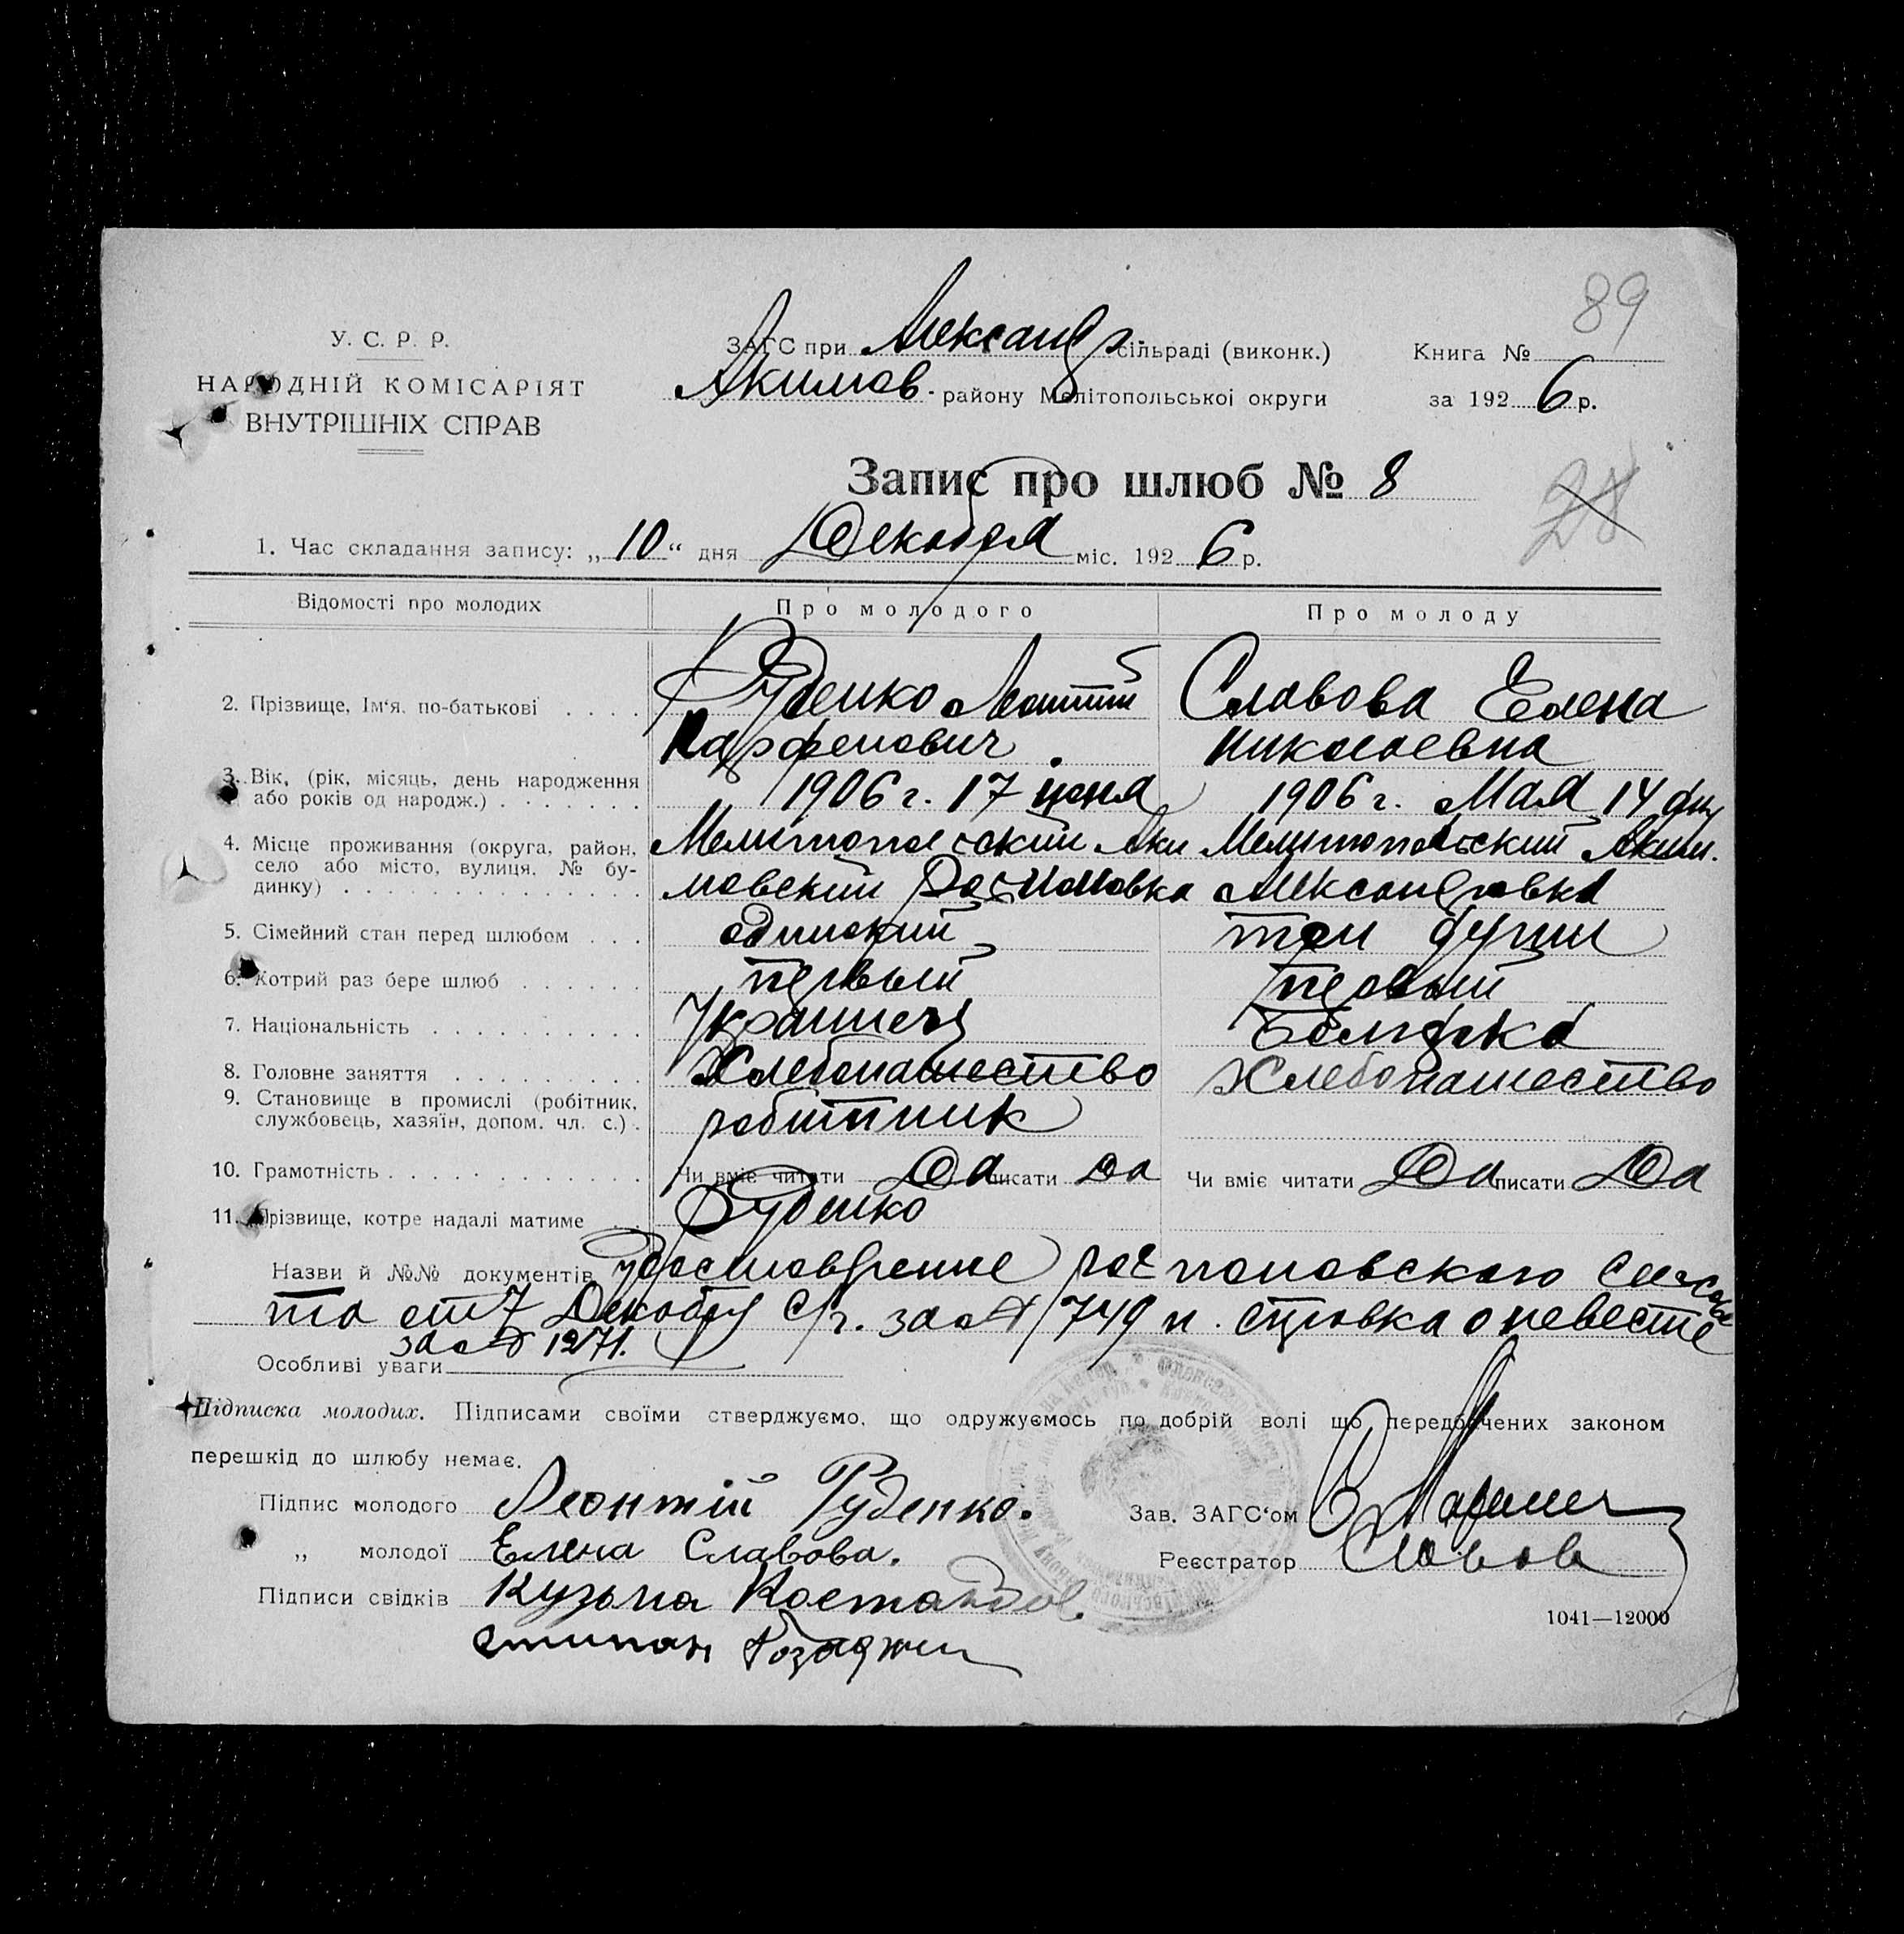 89
У. С. Р. Р.
НАРОДНІЙ КОМІСАРІЯТ
ВНУТРІШНІХ СПРАВ
ЗАГС при Александр. сільраді (виконк.)
Акимов. району Мелітопольської округи
Книга №
за 1926 р.
Запис про шлюб № 8
28
1. Час складання запису: „10“ дня Декабря міс. 1926 р.
Відомості про молодих Про молодого Про молоду
2. Прізвище, Ім'я, по-батькові . . . . Руденко Леонтий Славова Елена
Парфенович Николаевна
3. Вік, (рік, місяць, день народження 1906 г. 17 июня 1906 г. Мая 14 дня
або років од народж.) . . . . . . .
4. Місце проживання (округа, район, Мелитопольский Аки Мелитопольский Аким.
село або місто, вулиця, № бу-
динку) . . . . . . . . . . . . . . мовский Александровка
5. Сімейний стан перед шлюбом . . . одинокий три души
6. Котрий раз бере шлюб . . . . . . первый первый
7. Національність . . . . . . . . . . Украинец Болгарка
8. Головне заняття . . . . . . . . . Хлебопашество Хлебопашество
9. Становище в промислі (робітник,
службовець, хазяїн, допом. чл. с.) . робітник
10. Грамотність . . . . . . . . . . . . Чи вміє читати Да писати Да Чи вміє читати Да писати Да
11. Прізвище, котре надалі матиме . . Руденко
Назви й №№ документів
та от 7 Декабря с/г. за № 1749 и справка о невесте
за № 1271.
Особливі уваги
Підписка молодих. Підписами своїми стверджуємо, що одружуємось по добрій волі що передбачених законом
перешкід до шлюбу немає.
Підпис молодого Леонтій Руденко. Зав. ЗАГС'ом
„ молодої Елена Славова. Реєстратор Славов
Підписи свідків Кузьма Костандов.
1041—12000